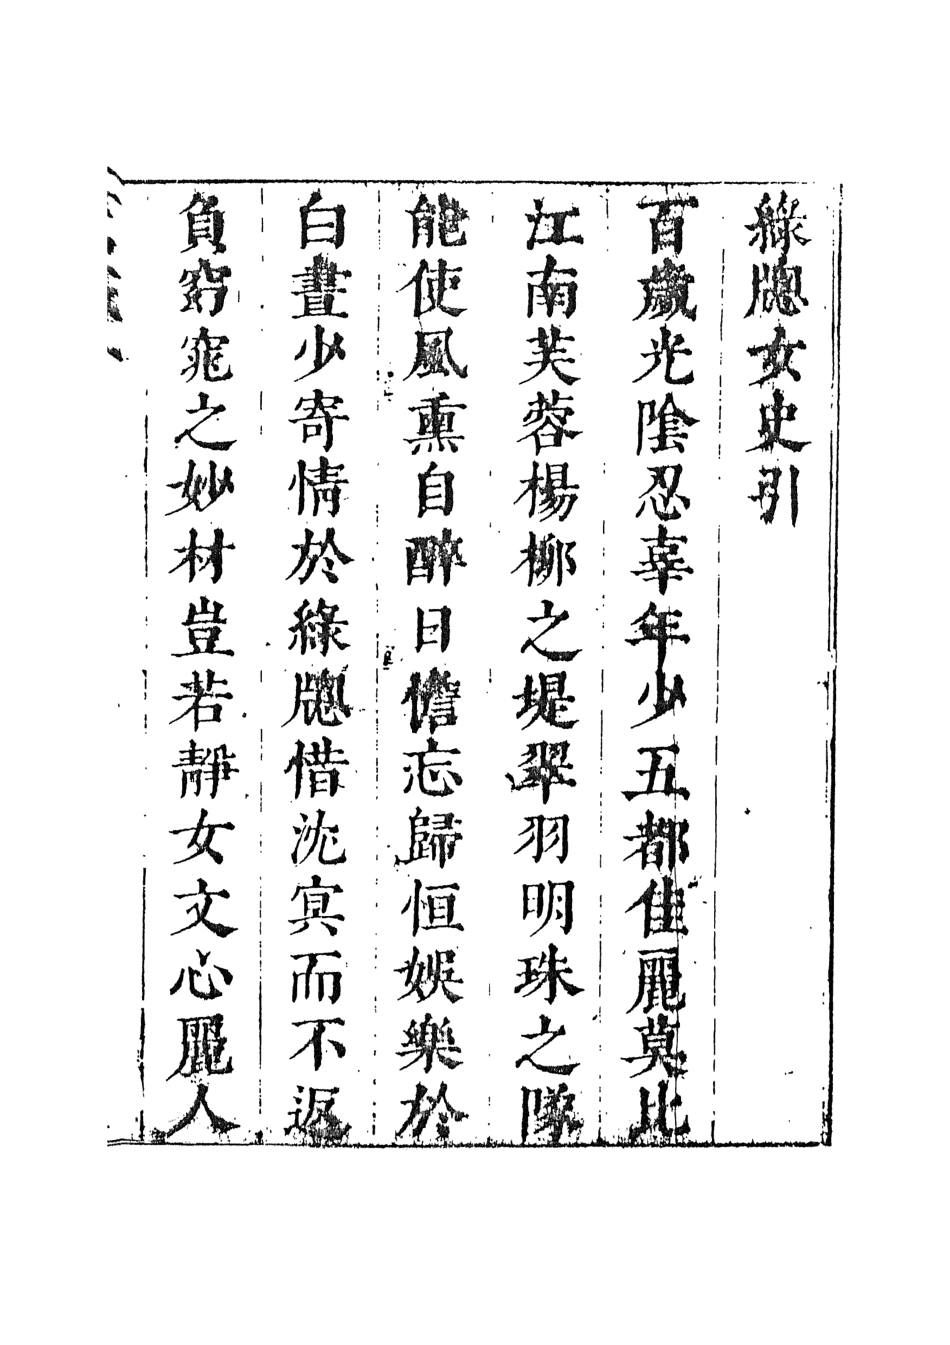 綠牕女史引
百歲光陰忍辜年少五都佳麗莫比
江南芙蓉楊柳之堤翠羽明珠之隊
能使風熏自醉日憺忘歸恒娛樂於
白晝少寄情於綠牕惜沈㝠而不返
負窈窕之妙材豈若靜女文心麗人